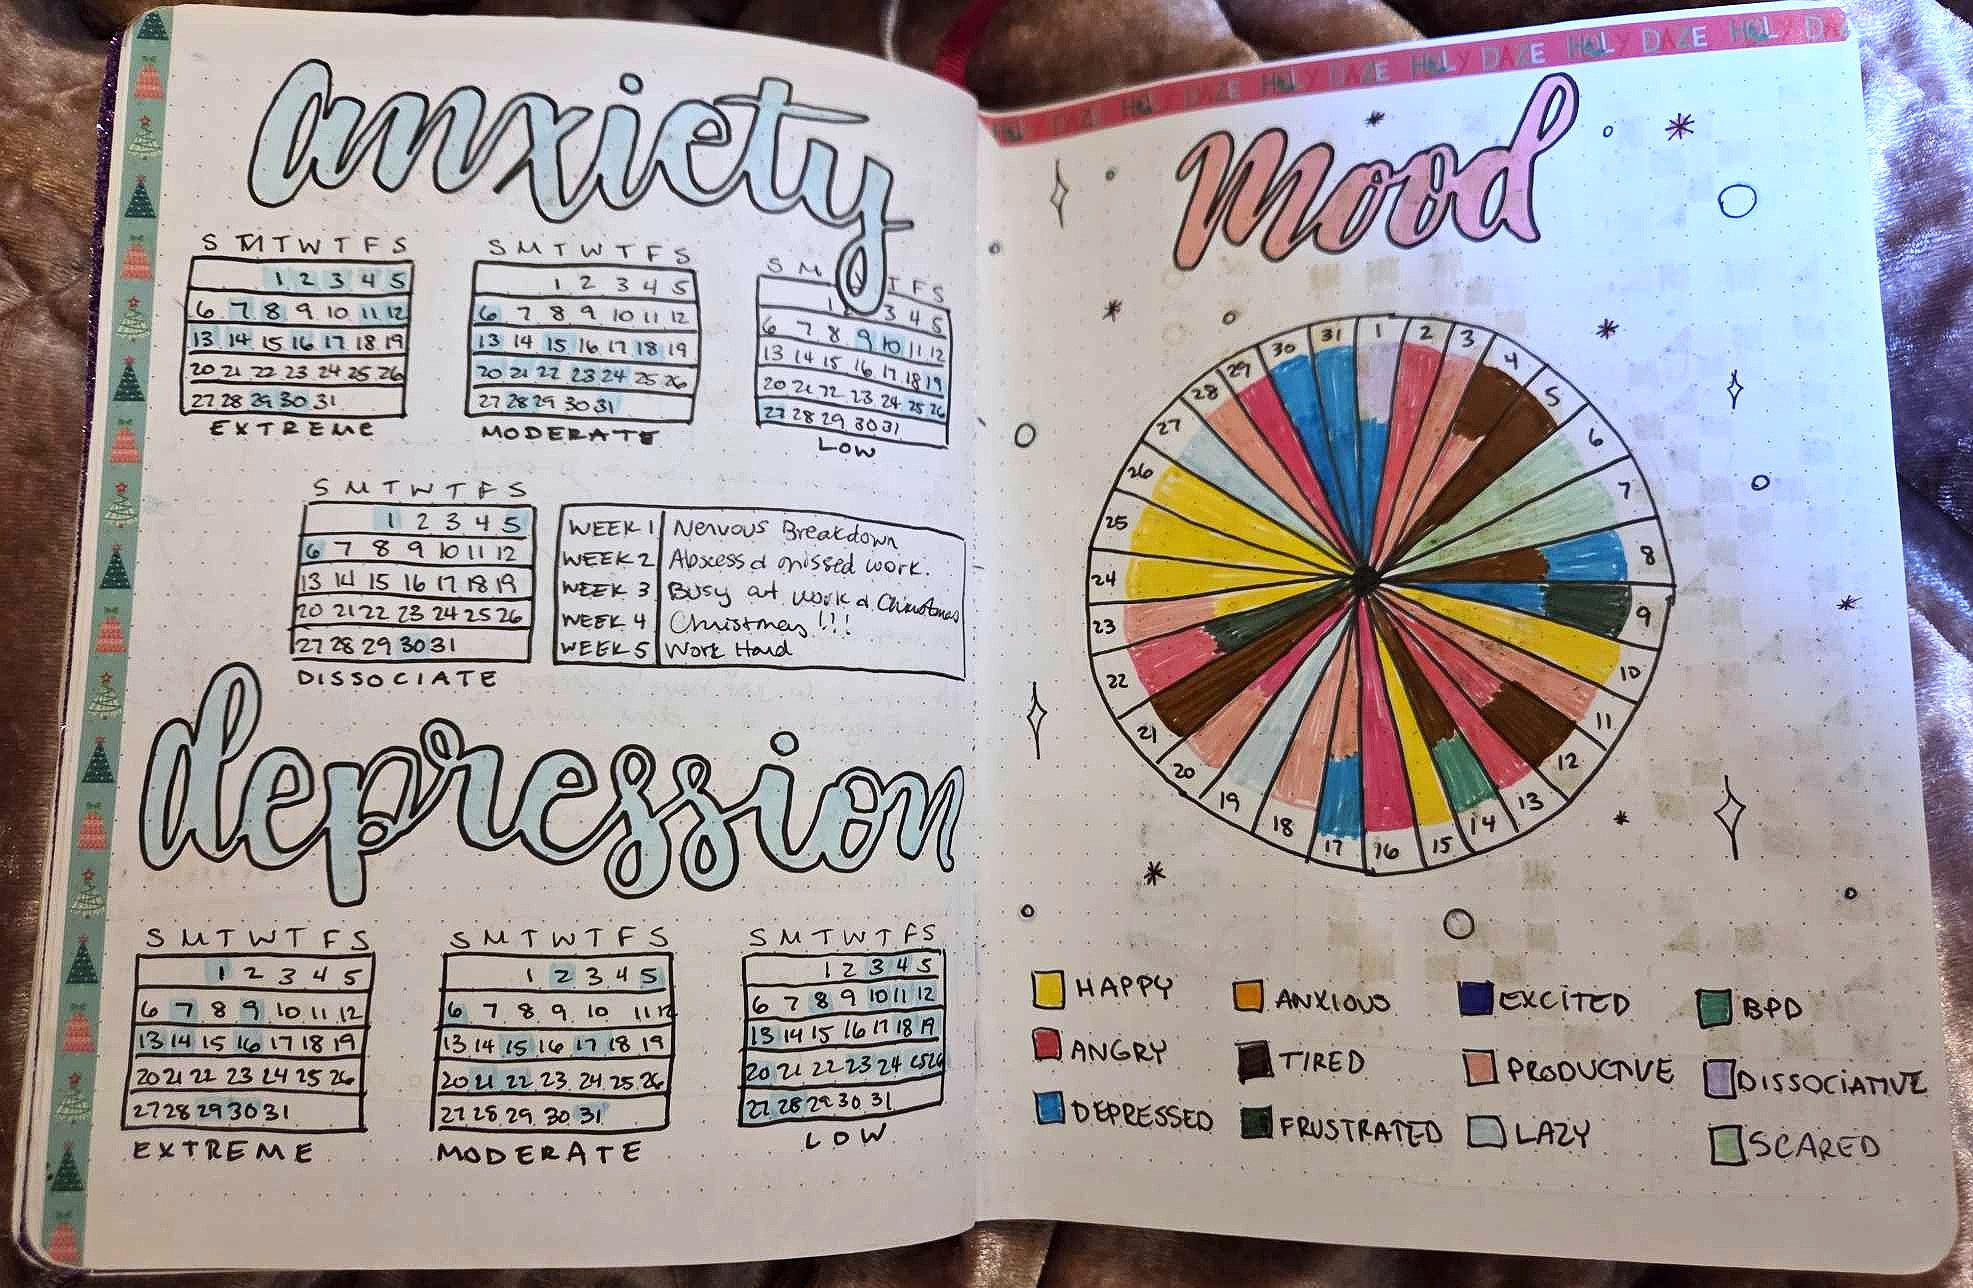 anxiety
S M T W T F S
1 2 3 4 5
6 7 8 9 10 11 12
13 14 15 16 17 18 19
20 21 22 23 24 25 26
27 28 29 30 31
EXTREME
S M T W T F S
1 2 3 4 5
6 7 8 9 10 11 12
13 14 15 16 17 18 19
20 21 22 23 24 25 26
27 28 29 30 31
MODERATE
S M T F S
1 2 3 4 5
6 7 8 9 10 11 12
13 14 15 16 17 18 19
20 21 22 23 24 25 26
27 28 29 30 31
LOW
S M T W T F S
1 2 3 4 5
6 7 8 9 10 11 12
13 14 15 16 17 18 19
20 21 22 23 24 25 26
27 28 29 30 31
DISSOCIATE
WEEK 1 Nervous Breakdown
WEEK 2 Abscess & missed work.
WEEK 3 Busy at work & Christmas
WEEK 4 Christmas!!!
WEEK 5 Work Hard
depression
S M T W T F S
1 2 3 4 5
6 7 8 9 10 11 12
13 14 15 16 17 18 19
20 21 22 23 24 25 26
27 28 29 30 31
EXTREME
S M T W T F S
1 2 3 4 5
6 7 8 9 10 11 12
13 14 15 16 17 18 19
20 21 22 23 24 25 26
27 28 29 30 31
MODERATE
S M T W T F S
1 2 3 4 5
6 7 8 9 10 11 12
13 14 15 16 17 18 19
20 21 22 23 24 25 26
27 28 29 30 31
LOW
HOLY DAZE HOLY DAZE HOLY DAZE HOLY DAZE HOLY DAZE HOLY DA
Mood
1
2
3
4
5
6
7
8
9
10
11
12
13
14
15
16
17
18
19
20
21
22
23
24
25
26
27
28
29
30
31
HAPPY ANXIOUS EXCITED BPD
ANGRY TIRED PRODUCTIVE DISSOCIATIVE
DEPRESSED FRUSTRATED LAZY SCARED